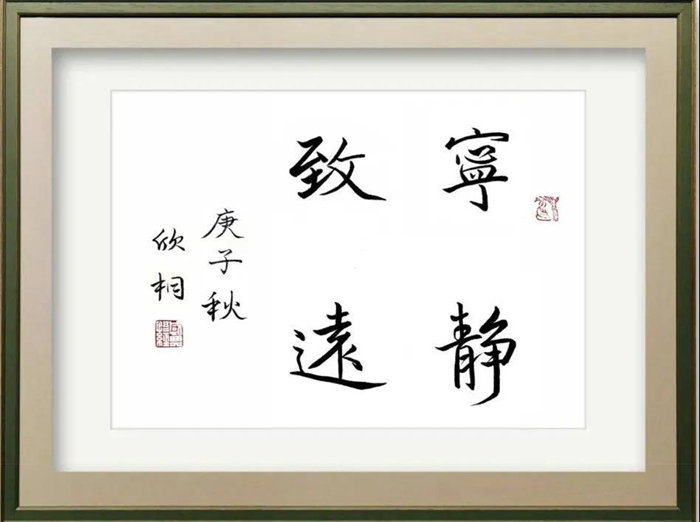 寧靜
致遠
庚子秋
欣桐